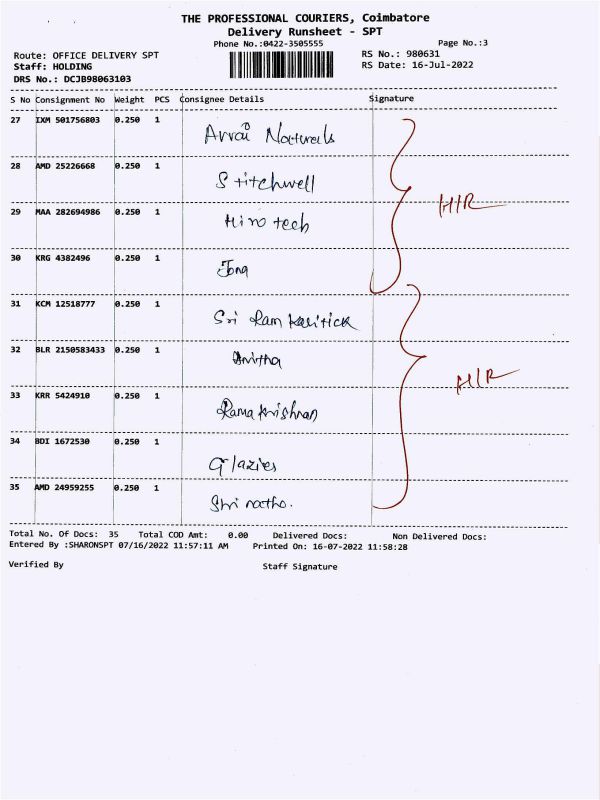 THE PROFESSIONAL COURIERS, Coimbatore
Delivery Runsheet - SPT
Phone No.:0422-3505555 Page No.:3
Route: OFFICE DELIVERY SPT RS No.: 980631
Staff: HOLDING RS Date: 16-Jul-2022
DRS No.: DCJB98063103
S No Consignment No Weight PCS Consignee Details Signature
27 IXM 501756803 0.250 1 Naturals
28 AMD 25226668 0.250 1 Stitchwell
29 MAA 282694986 0.250 1 Hiro tech
H/R
30 KRG 4382496 0.250 1
31 KCM 12518777 0.250 1 Sri Ram
32 BLR 2150583433 0.250 1 Anitha
H/R
33 KRR 5424910 0.250 1 Rama Krishnan
34 BDI 1672530 0.250 1 Glazies
35 AMD 24959255 0.250 1 Shri
Total No. Of Docs: 35 Total COD Amt: 0.00 Delivered Docs: Non Delivered Docs:
Entered By :SHARONSPT 07/16/2022 11:57:11 AM Printed On: 16-07-2022 11:58:28
Verified By Staff Signature